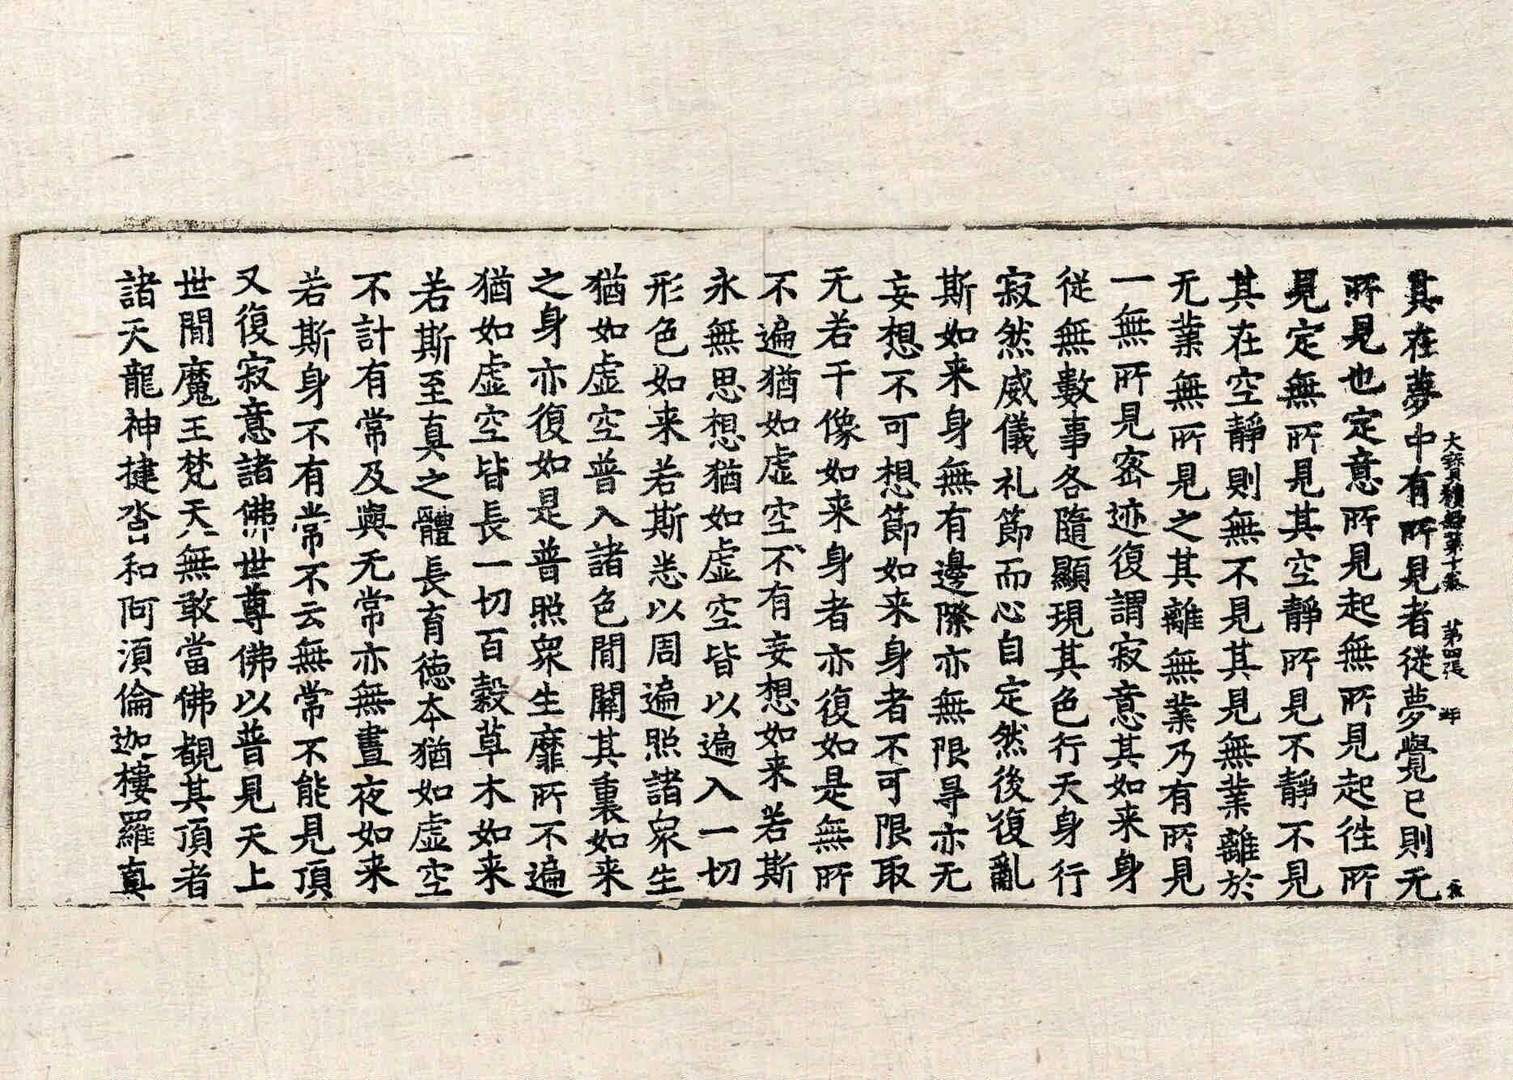 大寶積經第十卷 第四張
其在夢中有所見者從夢覺已則无
所見也定意所見起無所見起住所
見定無所見其空靜所見不靜不見
其在空靜則無不見其見無業離於
无業無所見之其離無業乃有所見
一無所見密迹復謂寂意其如来身
從無數事各隨顯現其色行天身行
寂然威儀礼節而心自定然後復亂
斯如来身無有邊際亦無限㝵亦无
妄想不可想節如来身者不可限取
无若干像如来身者亦復如是無所
不遍猶如虛空不有妄想如来若斯
永無思想猶如虛空皆以遍入一切
形色如来若斯悉以周遍照諸衆生
猶如虛空普入諸色閒關其裏如来
之身亦復如是普照衆生靡所不遍
猶如虛空皆長一切百穀草木如来
若斯至真之體長育德本猶如虛空
不計有常及與无常亦無晝夜如来
若斯身不有常不云無常不能見頂
又復寂意諸佛世尊佛以普見天上
世閒魔王梵天無敢當佛覩其頂者
諸天龍神揵沓和阿湏倫迦樓羅真